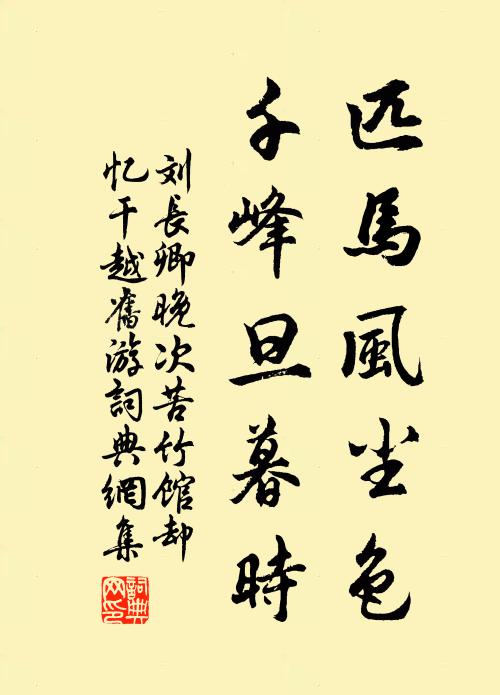 匹馬風尘色
千峰旦暮時
刘長卿晚次苦竹馆却
忆干越舊游詞典網集
詞典网印